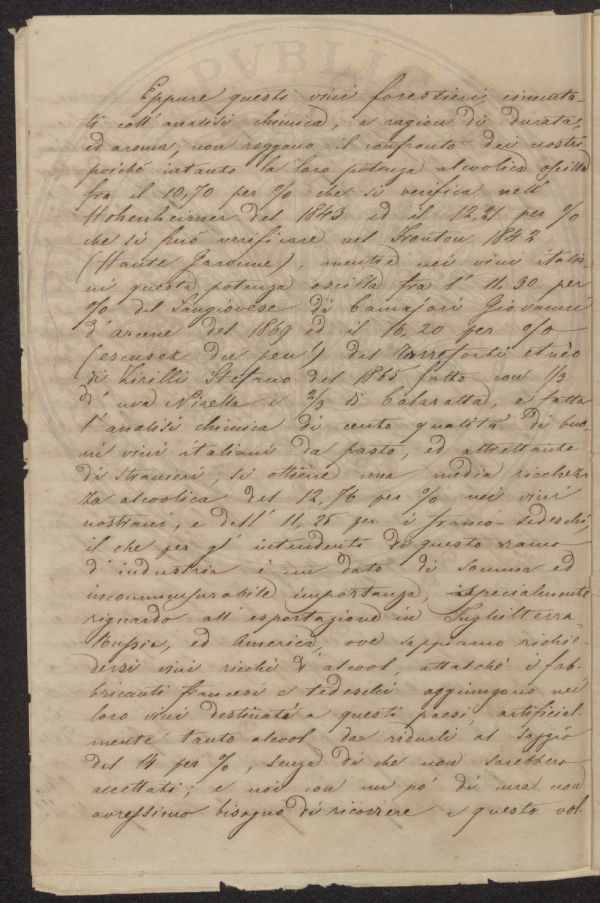 PVBLIC
Eppure questi vini forestieri, cimenta-
ti coll'analisi chimica, a ragion di durata,
ed aroma, non reggono il confronto dei nostri
poiché intanto la loro potenza alcoolica oscilla
fra il 10,70 per % che si verifica nell'
Hohenheimer del 1843 ed il 12,21 per %
che si può verificare nel Fronton 1842
(Haute Garonne), mentre nei vini italia-
ni questa potenza oscilla fra l' 11,30 per
% del Sangiovese di Camajori Giovanni
d'arcene del 1869 ed il 16,20 per %
(escusez du peu!) del Torreforte etneo
di Zirilli Stefano del 1865 fatto con 1/3
d' uva Nirella e 2/3 di Calaratta, e fatta
l'analisi chimica di cento qualità di buo-
ni vini italiani da pasto, ed altrettante
di stranieri, si ottiene una media ricchez-
za alcoolica del 12,76 per % nei vini
nostrani, e dell' 11,25 per i franco-tedeschi,
il che per gl' intendenti di questo ramo
d' industria è un dato di somma ed
incommensurabile importanza, specialmente
riguardo all' esportazione in Inghilterra
Russia, ed America, ove sappiamo richie-
dersi vini ricchi d' alcool, attalché i fab-
bricanti francesi e tedeschi aggiungono nei
loro vini destinati a questi paesi, artificial-
mente tanto alcool da ridurli al saggio
del 14 per %, senza di che non sarebbero
accettati; e noi con un pó di cura non
avressimo bisogno di ricorrere a questo vol-